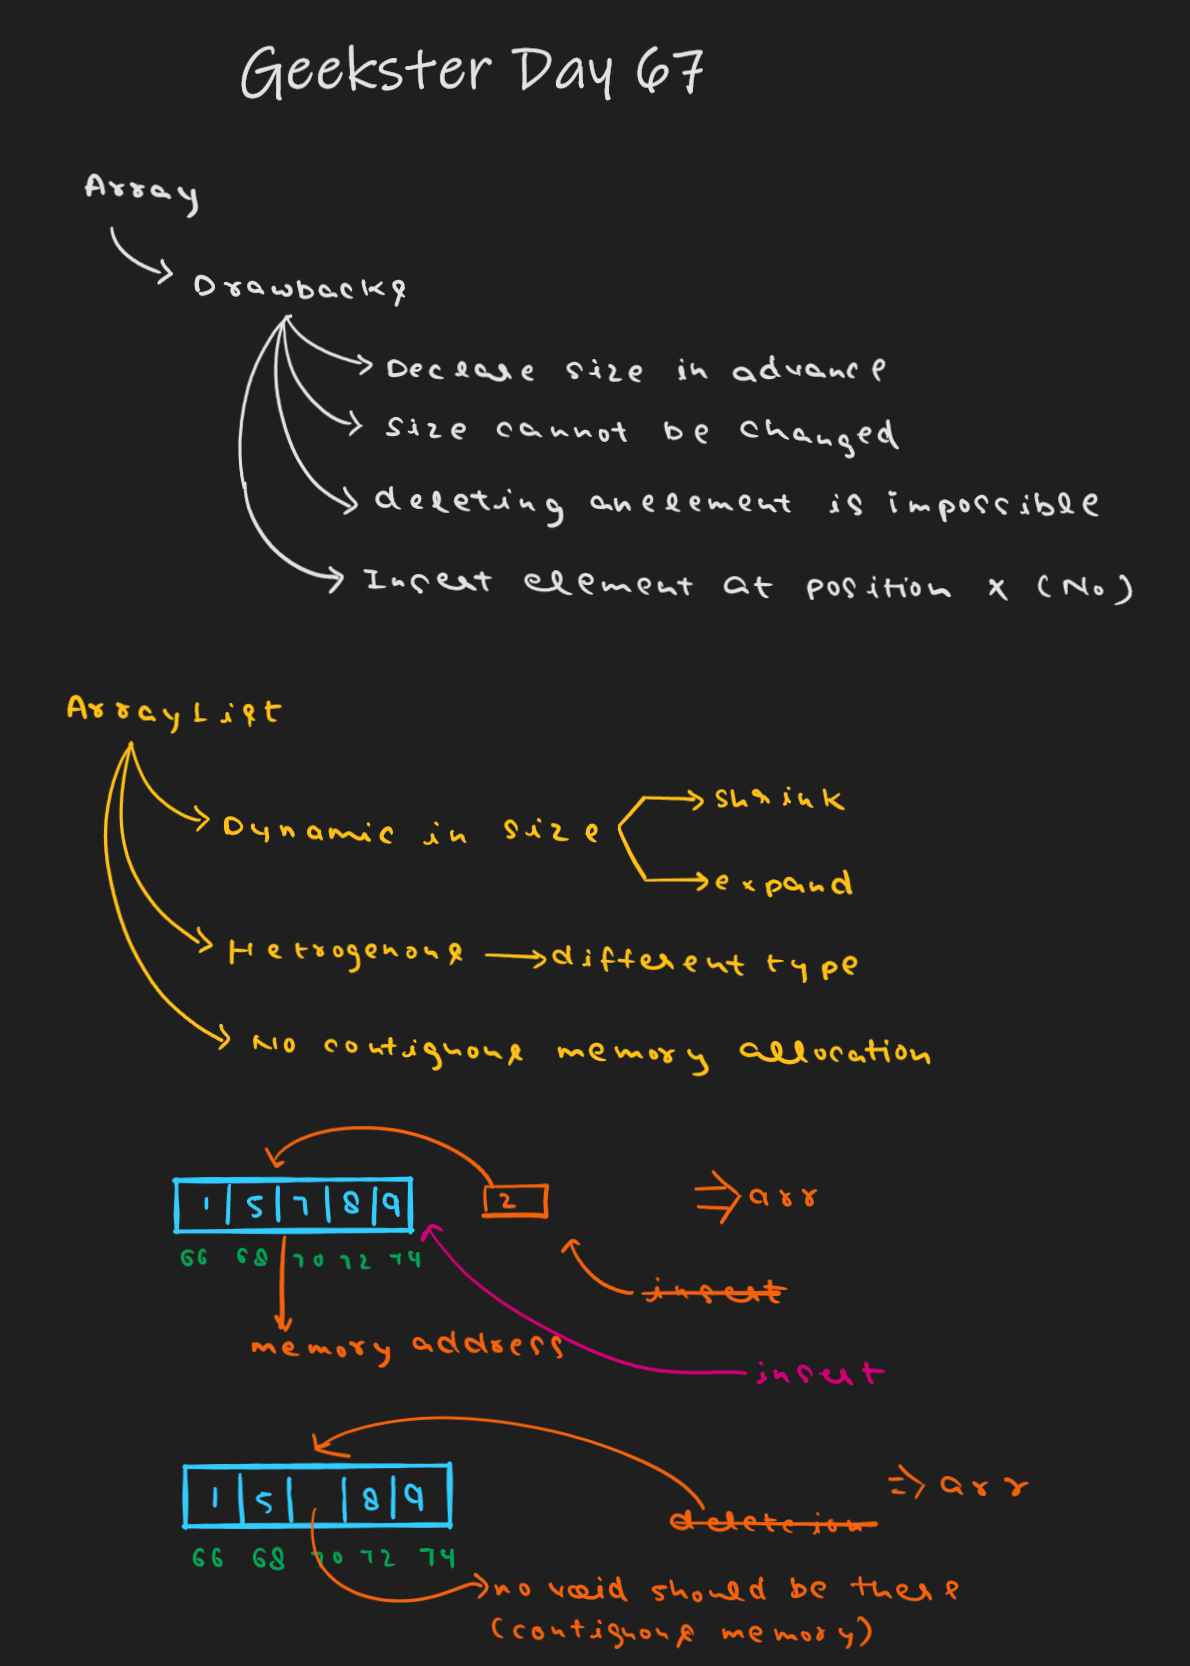 Geekster Day 67
Array
Drawbacks
Declare size in advance
Size cannot be changed
deleting an element is impossible
Insert element at position x (No)
ArrayList
Dynamic in size
shrink
expand
Hetrogenous → different type
No contiguous memory allocation
1 5 7 8 9
2
⇒ arr
66 68 70 72 74
insert
memory address
insert
1 5 8 9
⇒ arr
deleteion
66 68 70 72 74
no void should be there
(contiguous memory)